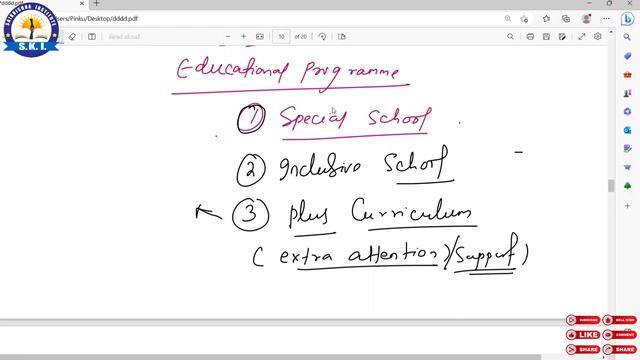 dddd.pdf
ers/Pinku/Desktop/dddd.pdf
SATCHIKSHA INSTITUTE
S.K.I.
Read aloud
10 of 20
Educational Programme
① Special School
② Inclusive School
③ Plus Curriculum
(extra attention)/Support)
SUBSCRIBE
BELL ICON
SUBSCRIBE
LIKE
COMMENT
SHARE
SHARE